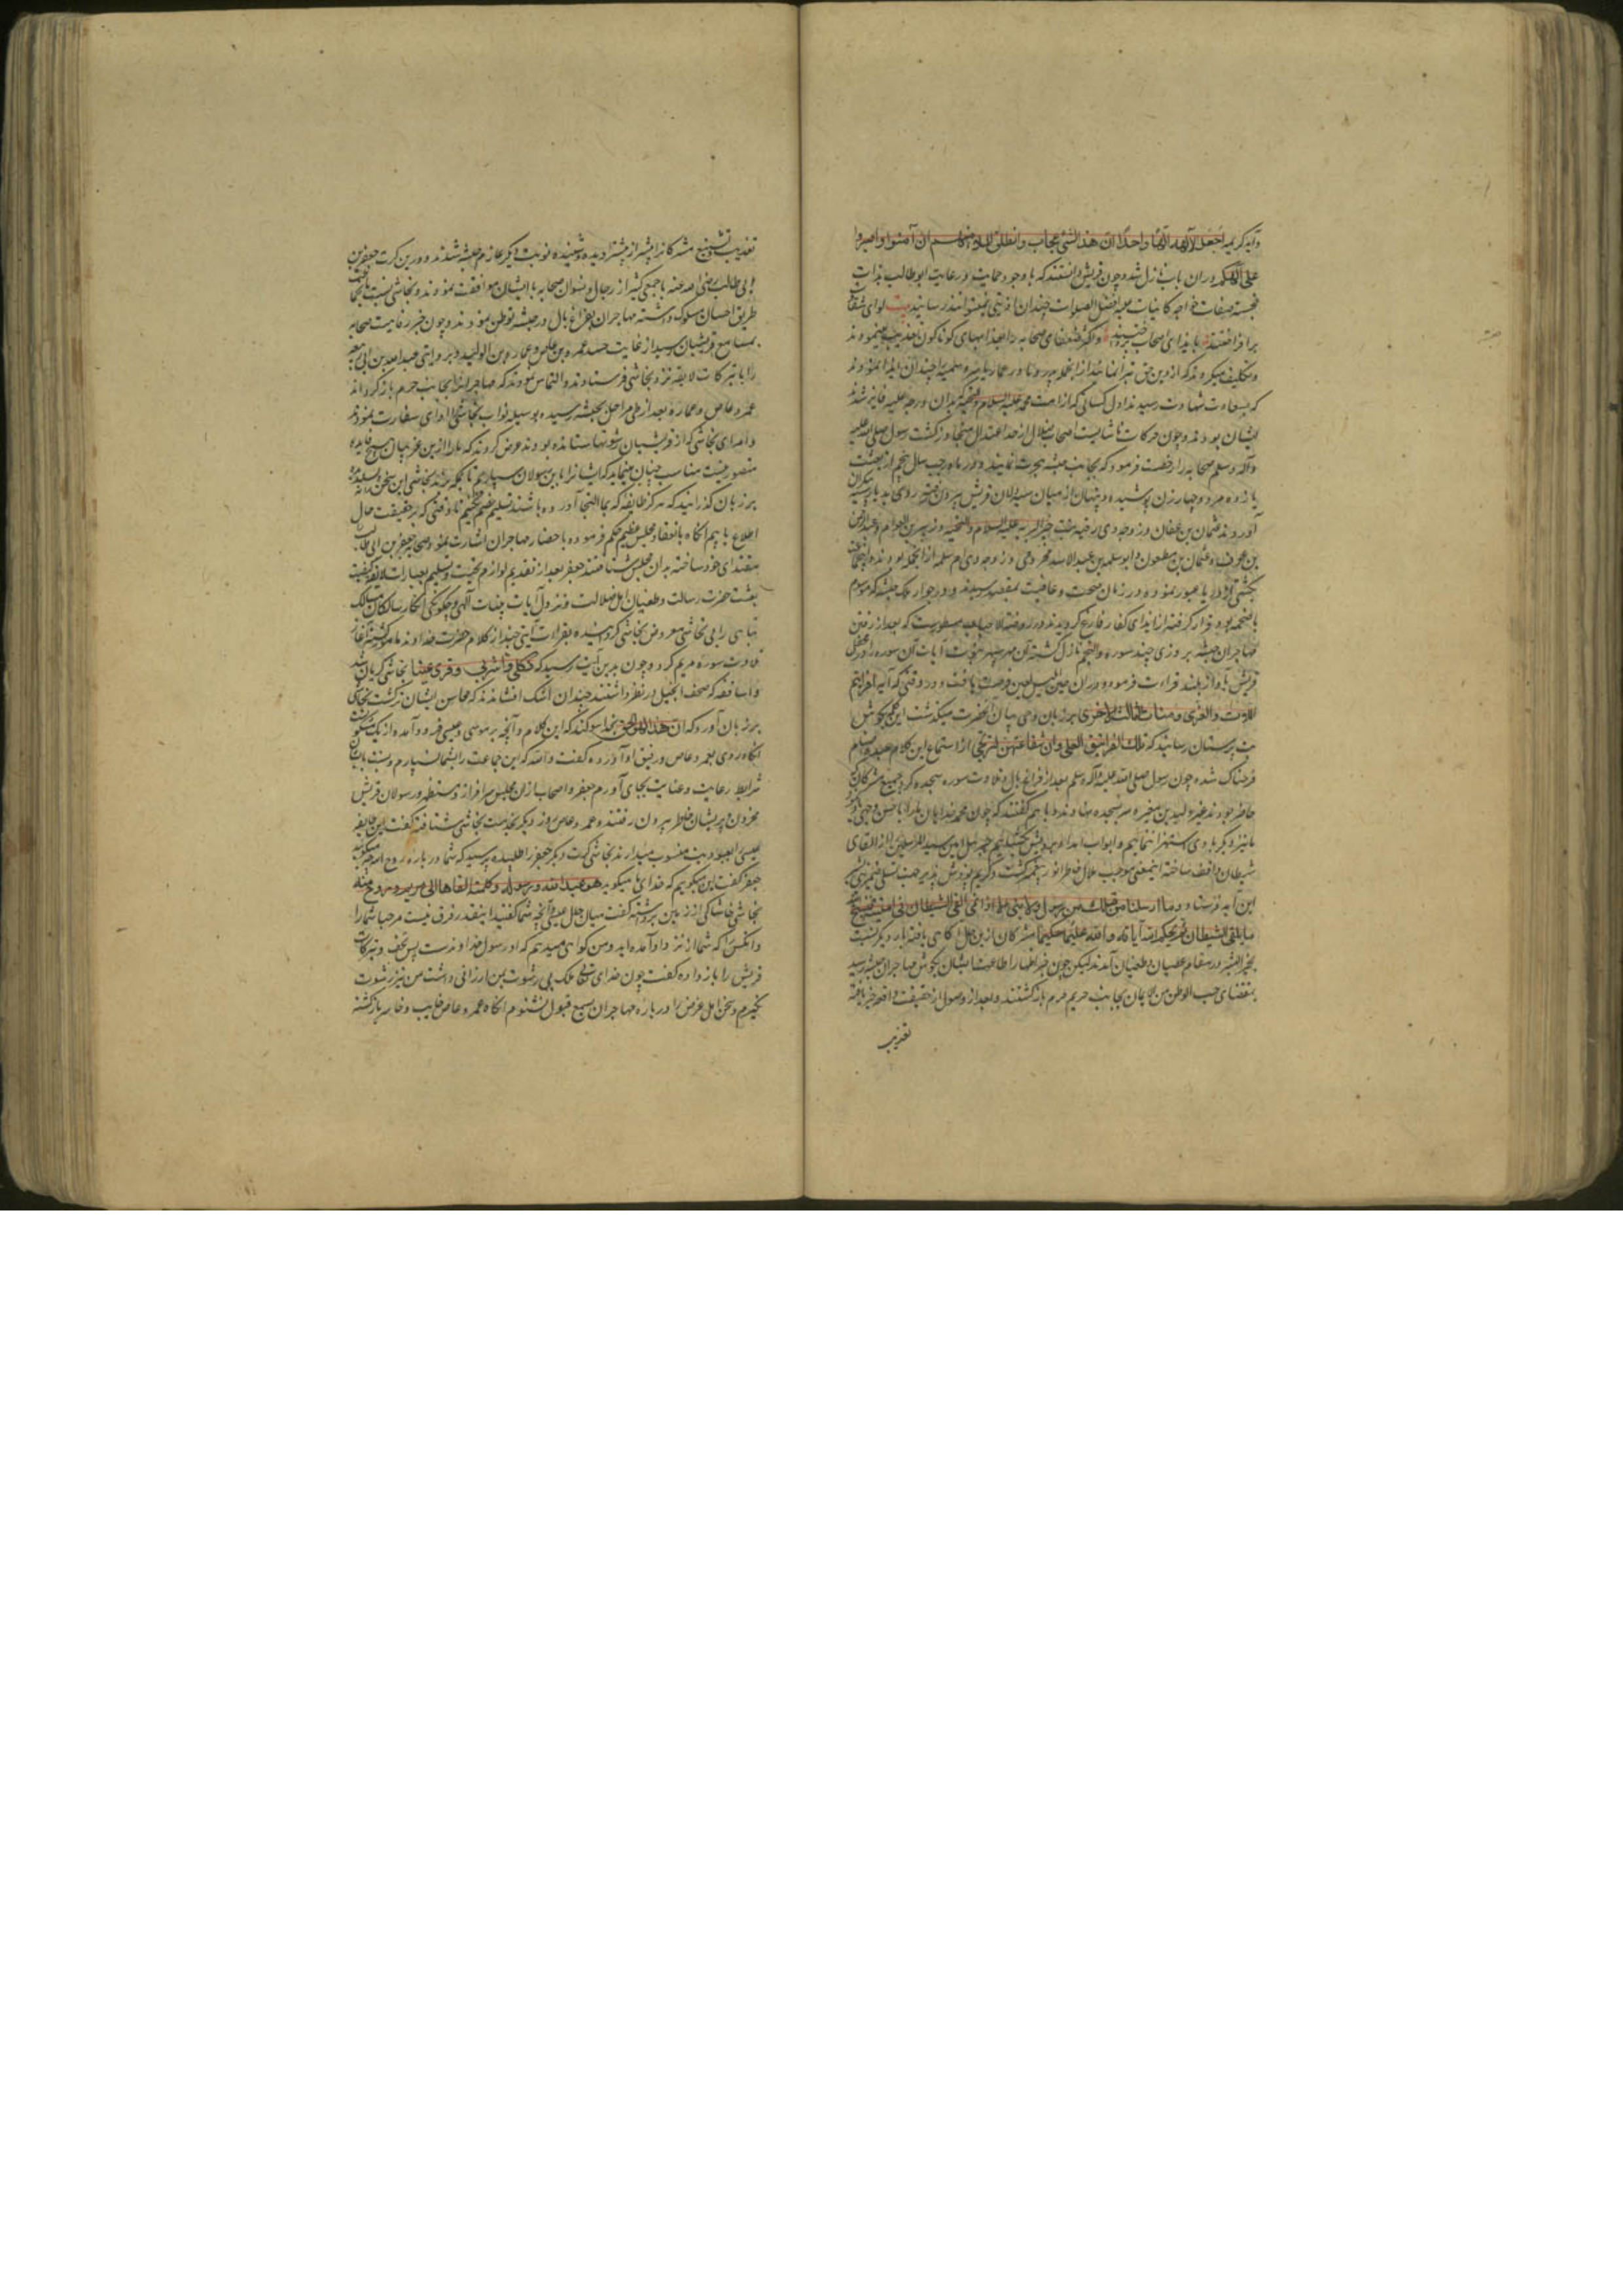 وآیه کریمه اجعل الآلهة الها واحدا ان هذا لشئ عجاب وانطلق الملاء منهم ان امشوا واصبروا
علی آلهتکم دران باب نازل شد و چون قریش دانستند که با وجود حمایت و رعایت ابوطالب بذات
خجسته صفات خواجه کاینات علیه افضل الصلوات چندان اذیتی نمیتوانند رسانید بیت لوای شقاق
برافراختند بایذای اصحاب و اکثر ضعفای صحابه را بعذابهای کوناکون تعذیب مینمودند
و تکلیف میکردند که از دین حق تبرا نمایند از انجمله پدر و مادر عمار یاسر و سمیه را چندان ایذا نمودند
که بسعادت شهادت رسیدند و اول کسانی که از امت محمد علیه السلام والتحیة بدان درجه علیه فایز شدند
ایشان بودند و چون حرکات ناشایست اصحاب ضلال از حد اعتدال متجاوز کشت رسول صلی الله علیه
وآله وسلم صحابه را رخصت فرمود که بجانب حبشه هجرت نمایند و در ماه رجب سال پنجم از بعثت
یازده مرد و چهار زن پوشیده و پنهان از میان سیدلان قریش بیرون رفته روی بدریا
آوردند عثمان بن عفان و زوجه وی رقیه بنت خیر البریه علیه السلام والتحیه و زبیر بن العوام و عبدالرحمن
بن عوف و عثمان بن مظعون و ابوسلمه بن عبدالاسد مخزومی و زوجه وی ام سلمه از انجمله بودند و انجماعت
بکشتی از دریا عبور نموده در زمان صحت و عافیت بمقصد رسیدند و در جوار ملک حبشه که موسوم
باصحمه بود قرار کرفته از ایذای کفار فارغ کردیدند و در روضة الاحباب مسطورست که بعد از رفتن
مهاجران حبشه بروزی چند سوره والنجم نازل کشته آن مهر سپهر نبوت آیات آن سوره را در محفل
قریش بآواز بلند قراءت فرمود و دران حین ابلیس لعین فرصت یافت و در وقتی که آیه افرایتم
اللات والعزی ومنات الثالثة الاخری بر زبان وحی بیان آنحضرت میکذشت این کلمه بکوش
بت پرستان رسانید که تلک الغرانیق العلی وان شفاعتهن لترتجی از استماع این کلام عبده اصنام
فرحناک شده چون رسول صلی الله علیه وآله وسلم بعد از فراغ بال و تلاوت سوره سجده کرد جمیع مشرکان که
حاضر بودند غیر ولید بن مغیره سر بسجده نهادند و با هم کفتند که چون محمد خدایان ما را باحسن وجهی یاد کرد
ما نیز دیکر با وی استهزا ننماییم و ابواب امداد بر رویش بکشاییم جبرئیل امین سید المرسلین را از القای
شیطان واقف ساخته اینمعنی موجب ملال خاطر انور پیغمبر کشت و کریم پوزش پذیر جهت تسلی ضمیر منیرش
این آیه فرستاد وما ارسلنا من قبلک من رسول ولا نبی الا اذا تمنی القی الشیطان فی امنیته فینسخ الله
ما یلقی الشیطان ثم یحکم الله آیاته والله علیم حکیم مشرکان ازین حال آکاهی یافته بار دیکر نسبت
بخیر البشر در مقام عصیان و طغیان آمدند لیکن چون خبر اظهار اطاعت ایشان بکوش مهاجران حبشه رسید
بمقتضای حب الوطن من الایمان بجانب حریم حرم بازکشتند و بعد از وصول از حقیقت واقعه خبر یافته
تعذیب
تعذیب و تشنیع مشرکان را بیشتر از پیشتر دیده و شنیده نوبت دیکر عازم حبشه شدند و درین کرت جعفر بن
ابی طالب رضی الله عنه با جمعی کثیر از رجال و نسوان صحابه با ایشان موافقت نمودند و نجاشی نسبت
طریق احسان مسلوک داشته مهاجران بفراغ بال در حبشه توطن نمودند و چون خبر رفاهیت صحابه
بمسامع قریشیان رسید از غایت حسد عمرو بن عاص و عماره بن الولید و بروایتی عبدالله بن ابی ربیعه
را با تبرکات لایقه نزد نجاشی فرستادند و التماس نمودند که مهاجران را بجانب حرم بازکرداند
عمرو عاص و عماره بعد از طی مراحل بحبشه رسیده بوسیله نواب نجاشی ادای سفارت نمودند
و امرای نجاشی که از قریشیان رشوتها ستانده بودند عرض کردند که ما را ازین غریبان هیچ فایده
متصور نیست مناسب چنان مینماید که ایشانرا باین رسولان سپاریم تا بمکه برند نجاشی این سخن
بر زبان کذرانید که هر کز طایفه که بما التجا آورده باشند تسلیم خصم نکنیم تا وقتی که بر حقیقت حال
اطلاع یابیم آنکاه بانعقاد مجلس عظیم حکم فرموده باحضار مهاجران اشارت نمود و صحابه جعفر بن ابی طالب
مقتدای خود ساخته بدان مجلس شتافتند جعفر بعد از تقدیم لوازم تحیت و تسلیم بعبارات لایقه کیفیت
بعثت حضرت رسالت و طغیان اهل ضلالت و نزول آیات بینات آلهی و چکونکی انکار سالکان مسالک
تباهی را بی تحاشی معروض نجاشی کردانیده بقراءت آیتی چند از کلام حضرت خداوند مامور کشته آغاز
تلاوت سوره مریم کرد و چون بدین آیت رسید که فکلی واشربی وقری عینا نجاشی کریان شد
و اساقفه که صحف انجیل در نظر داشتند چندان اشک افشاندند که محاسن ایشان تر کشت نجاشی
بر زبان آورد که ان هذا لهو الحق بخدا سوکند که این کلام و آنچه بر موسی و عیسی فرود آمده از یک مشکوة
آنکاه روی بعمرو عاص و رفیق او آورده کفت والله که این جماعت را بشما نسپارم و نسبت بایشان
شرایط رعایت و عنایت بجای آورم جعفر و اصحاب ازان مجلس سرافراز و مستظهر و رسولان قریش
محزون و پریشان خاطر بیرون رفتند و عمرو عاص روز دیکر بخدمت نجاشی شتافته کفت این طایفه
عیسی را بعبودیت منسوب میدارند نجاشی کرت دیکر جعفر را طلبیده پرسید که شما در باره روح الله چه میکویید
جعفر کفت این میکوییم که خدای ما میکوید هو عبد الله ورسوله وکلمته القاها الی مریم وروح منه
نجاشی خاشاکی از زمین برداشته کفت میان حال عیسی و آنچه شما کفتید اینقدر فرق نیست مرحبا شما را
و آنکس را که شما از نزد او آمده اید و من کواهی میدهم که او رسول خداوندست پس تحف و تبرکات
قریش را باز داده کفت چون خدای تعالی ملک بی رشوت بمن ارزانی داشت من نیز رشوت
نکیرم و سخن اهل غرض را در باره مهاجران بسمع قبول نشنوم آنکاه عمرو عاص خایب و خاسر بازکشته